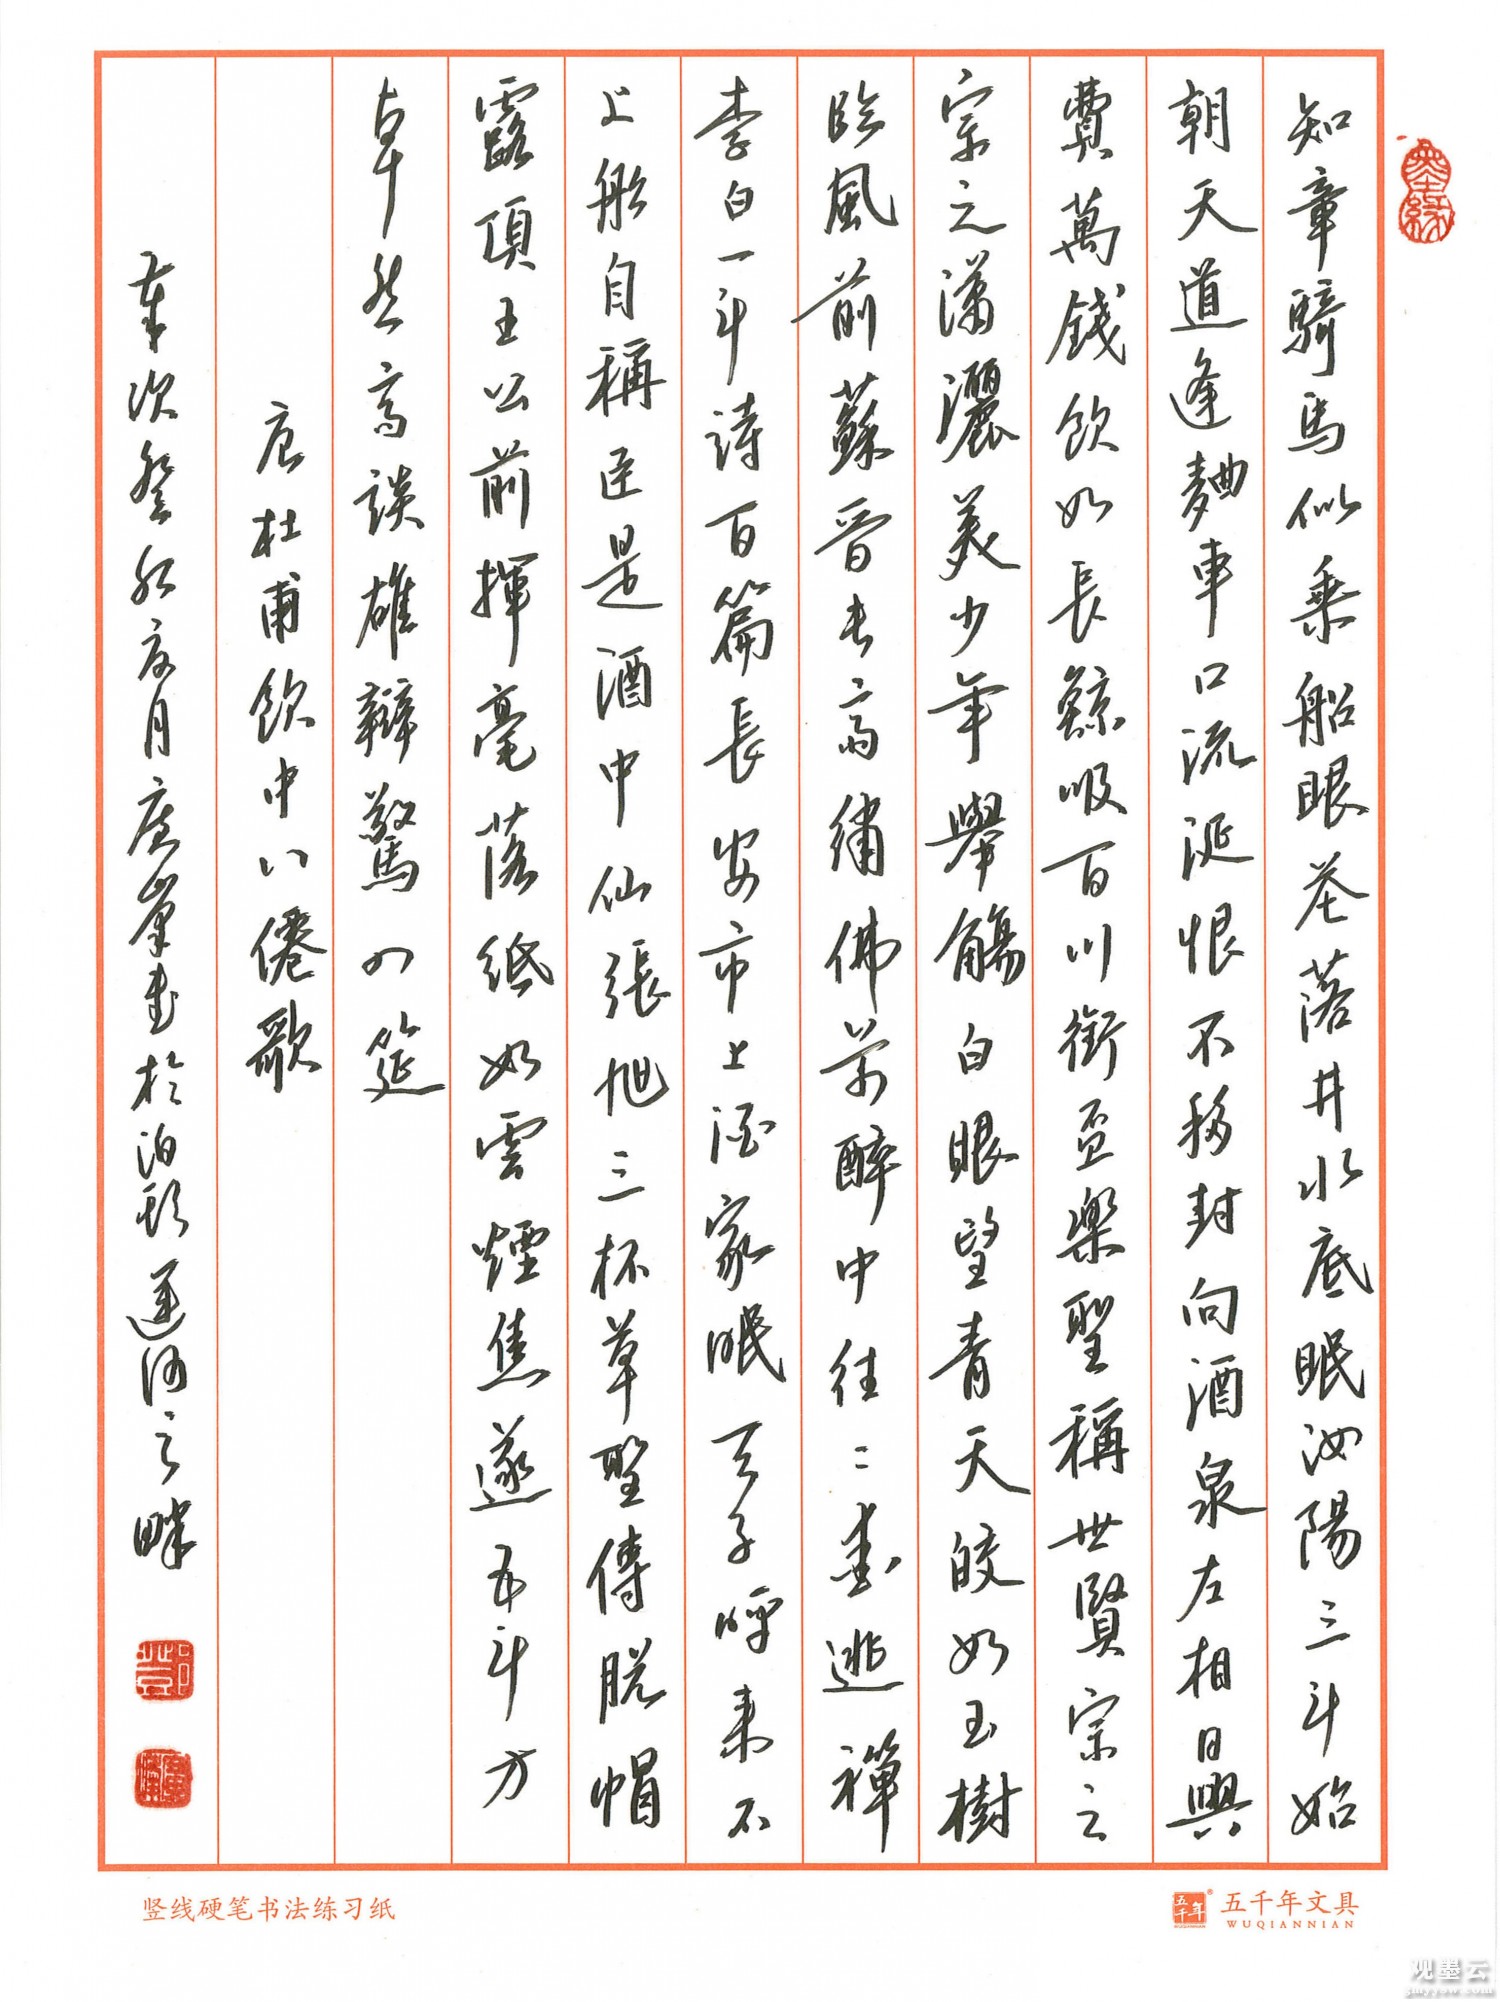 知章騎馬似乘船眼花落井水底眠汝陽三斗始
朝天道逢麯車口流涎恨不移封向酒泉左相日興
費萬錢飲如長鯨吸百川銜盃樂聖稱世賢宗之
宗之瀟灑美少年舉觴白眼望青天皎如玉樹
臨風前蘇晉長齋繡佛前醉中往〻愛逃禪
李白一斗詩百篇長安市上酒家眠天子呼來不
上船自稱臣是酒中仙張旭三杯草聖傳脫帽
露頂王公前揮毫落紙如雲煙焦遂五斗方
卓然高談雄辯驚四筵
唐杜甫飲中八僊歌
次癸月書於泊頭運河之畔
竖线硬笔书法练习纸
五千年文具
WUQIANNIAN
观墨云